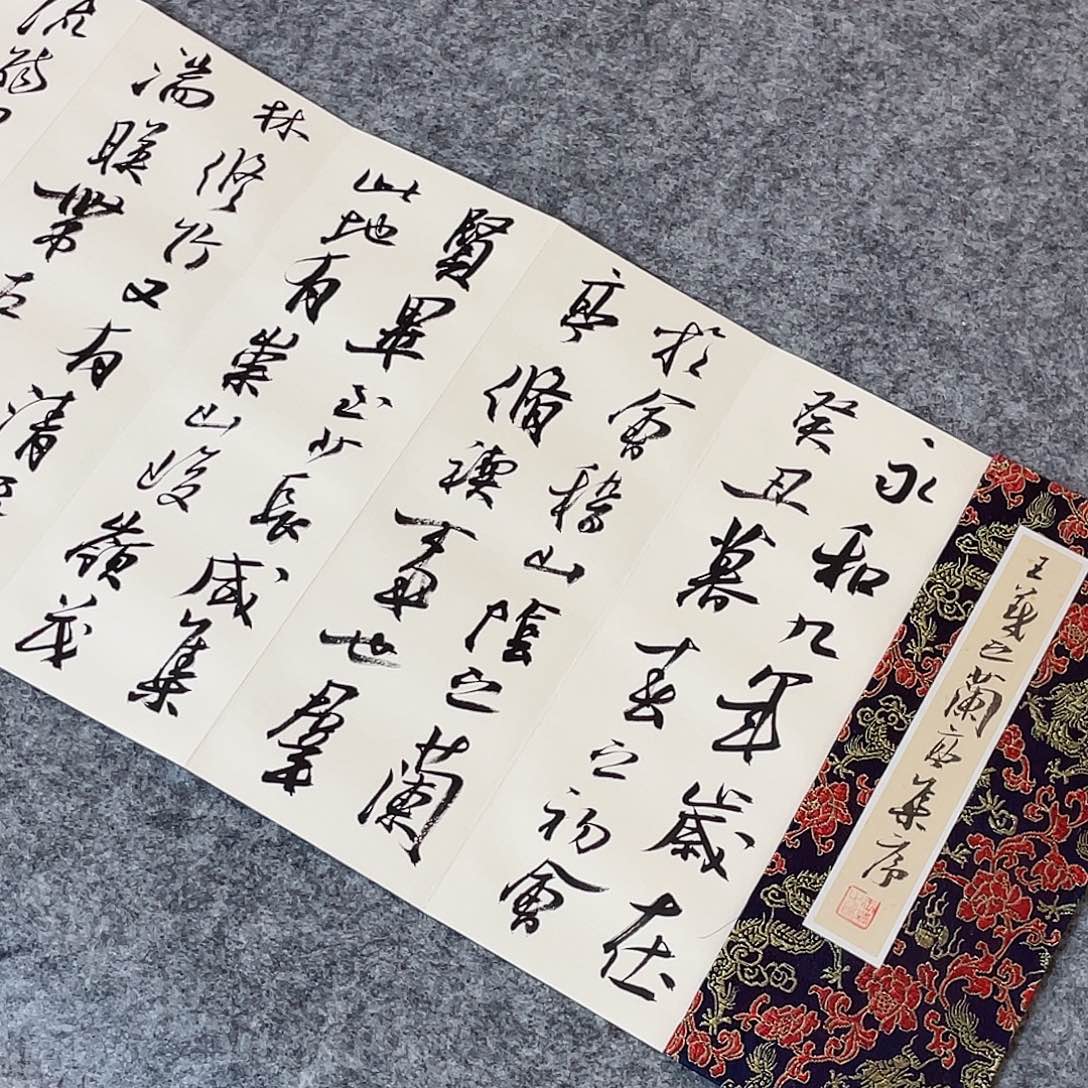 王羲之蘭亭集序
永和九年歲在
癸丑暮春之初會
於會稽山陰之蘭
亭脩禊事也羣
賢畢至少長咸集
此地有崇山峻嶺茂
林脩竹又有清
湍暎帶左
流觴